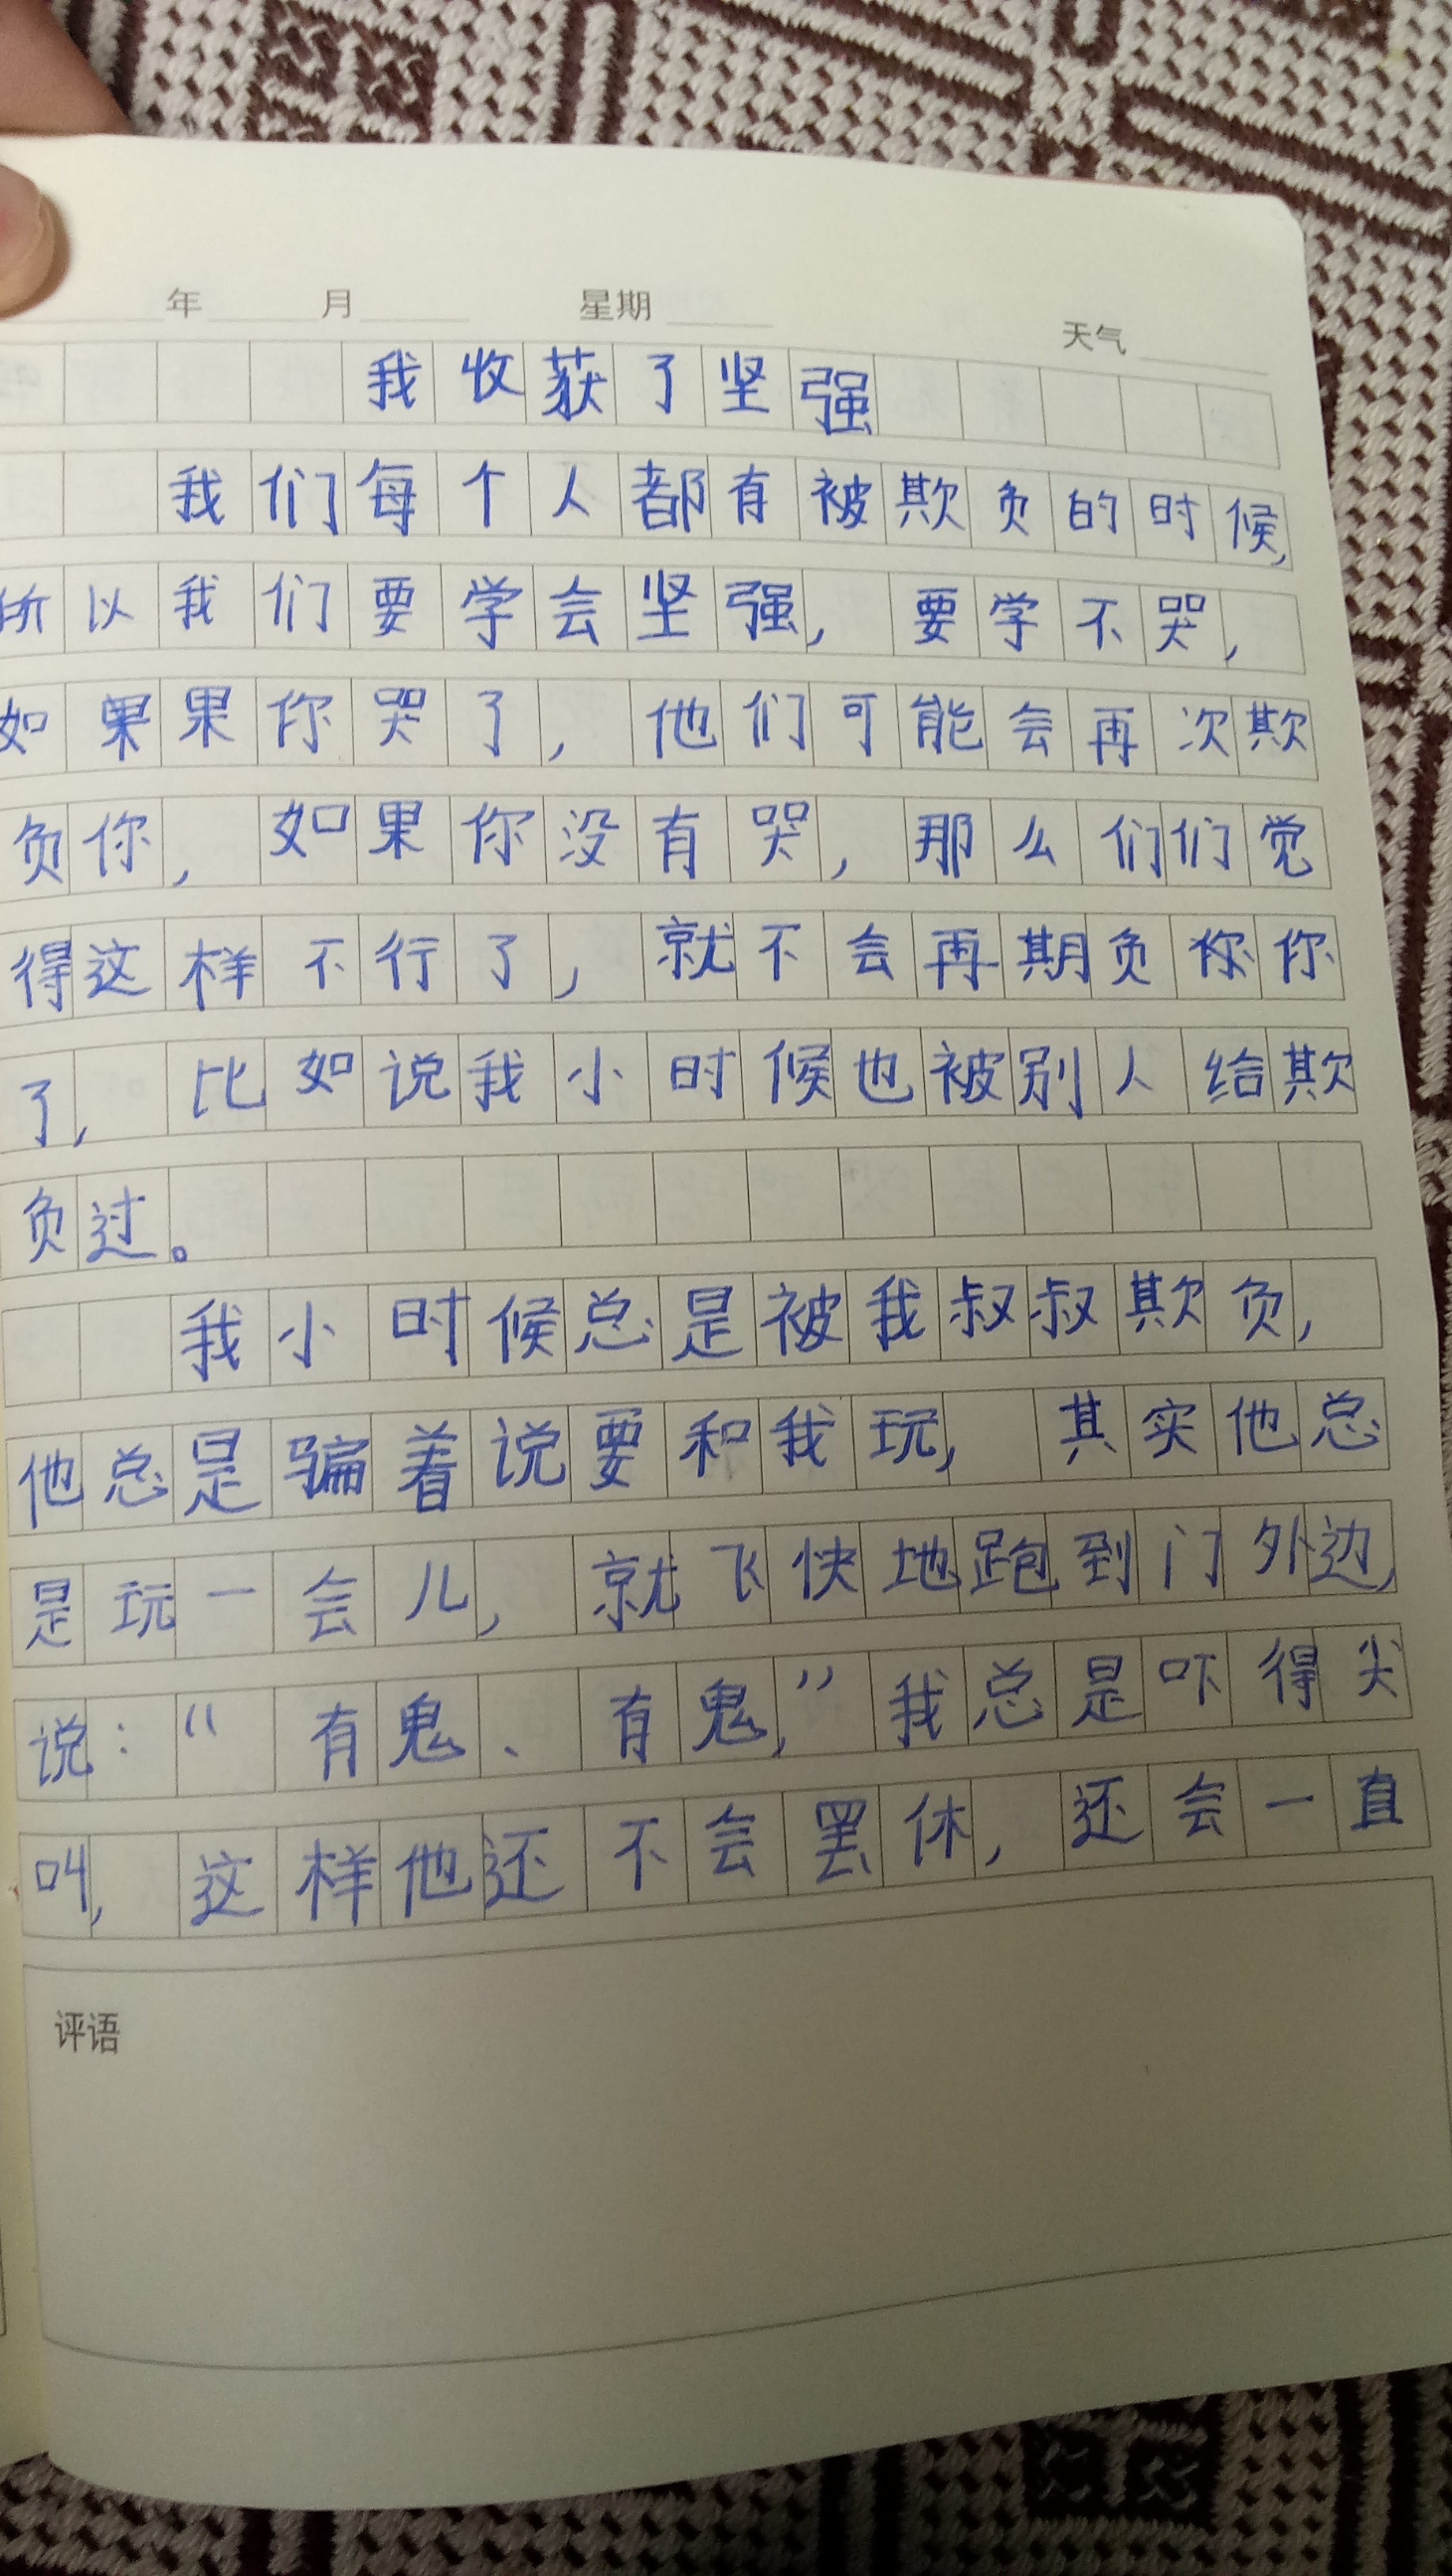 年 月 星期 天气
我收获了坚强
我们每个人都有被欺负的时候,
所以我们要学会坚强, 要学不哭,
如果果你哭了, 他们可能会再次欺
负你, 如果你没有哭, 那么们们觉
得这样不行了, 就不会再期负你你
了, 比如说我小时候也被别人给欺
负过。
我小时候总是被我叔叔欺负,
他总是骗着说要和我玩, 其实他总
是玩一会儿, 就飞快地跑到门外边,
说:“有鬼、有鬼,”我总是吓得尖
叫, 这样他还不会罢休, 还会一直
评语